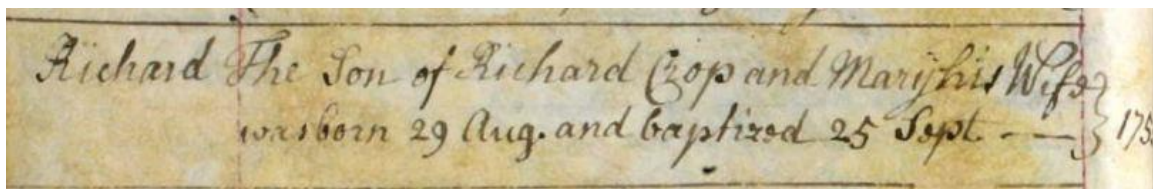 Richard The Son of Richard Crop and Mary his Wife
was born 29 Aug. and baptized 25 Sept. —